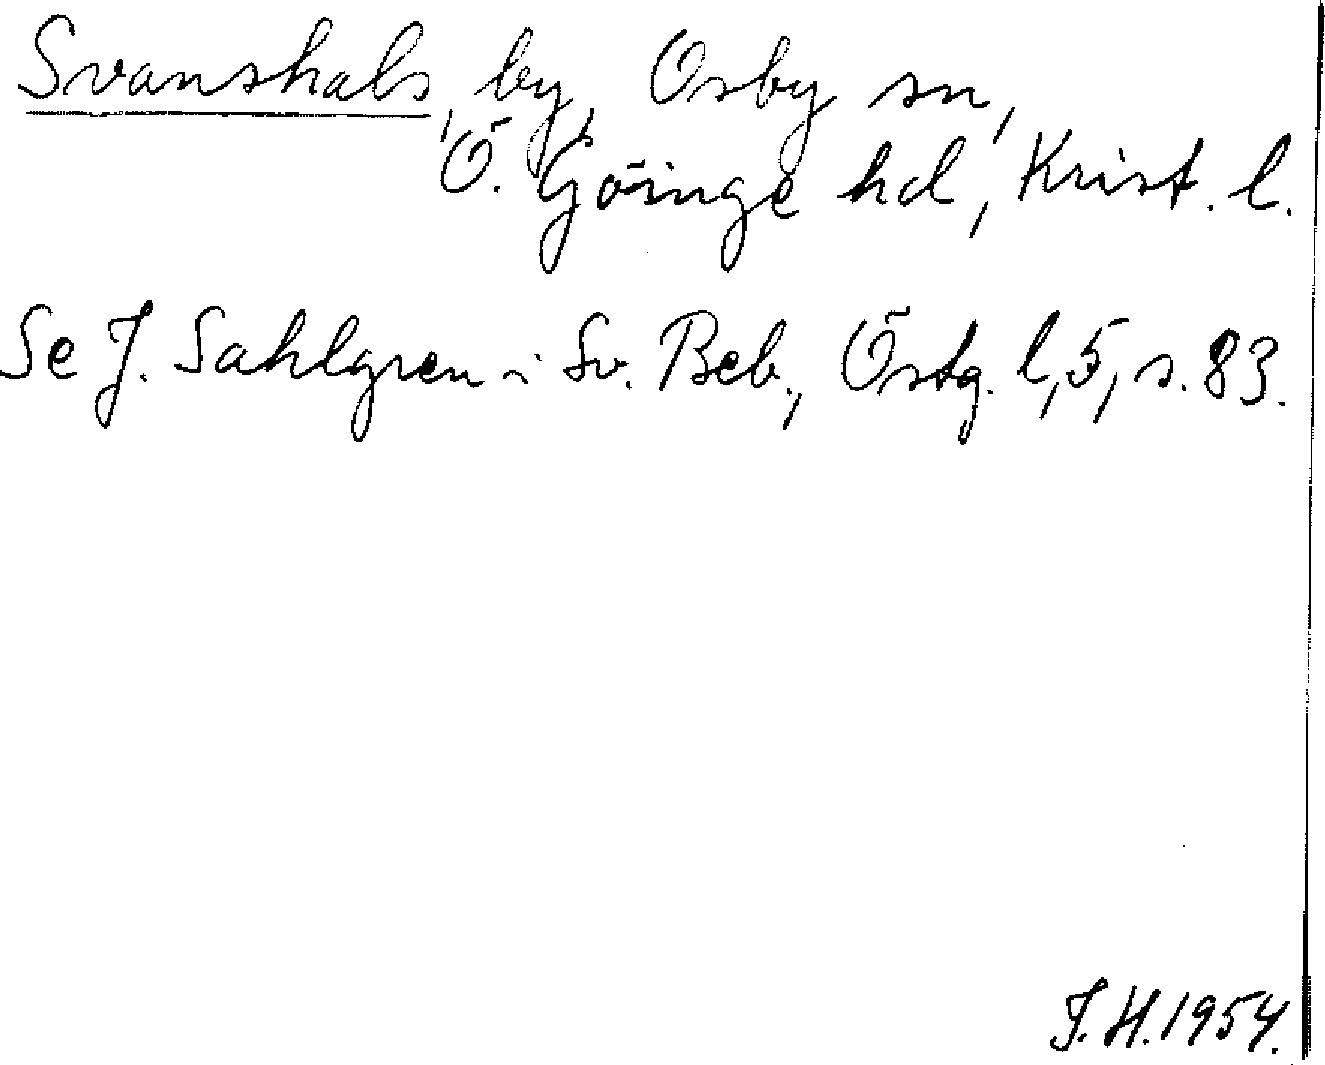 Svanshals, by, Osby sn,
Ö. Göinge hd, Krist. l.
Se J. Sahlgren i Sv. Beb., Östg. l, 5, s. 83.
J. H. 1954.